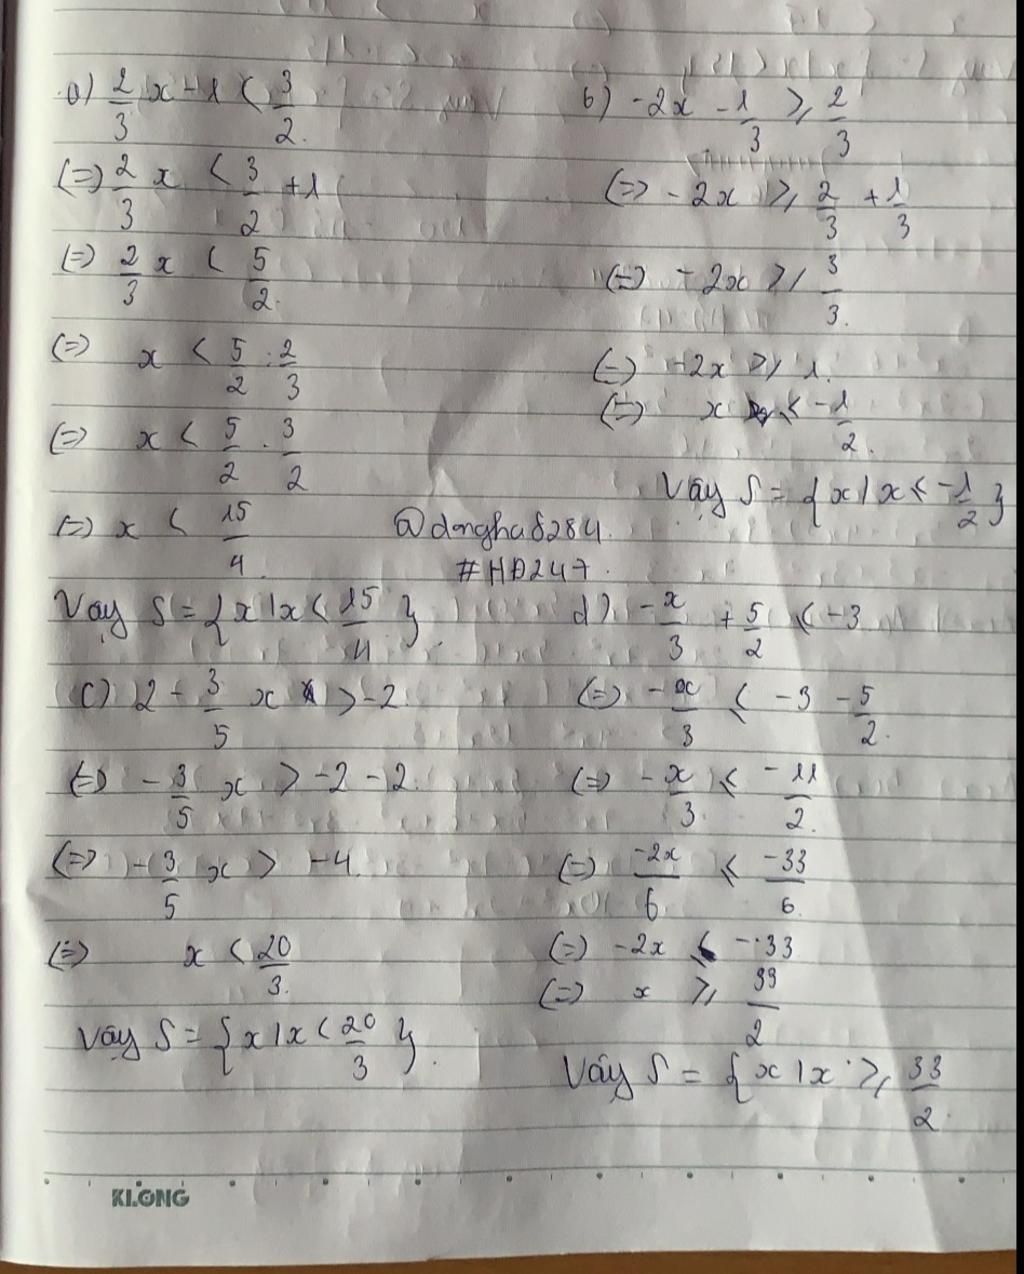 a) 2/3 x - 1 < 3/2.
(=) 2/3 x < 3/2 + 1
(=) 2/3 x < 5/2.
(=) x < 5/2 : 2/3
(=) x < 5/2 . 3/2
(=) x < 15/4.
Vậy S = { x | x < 15/4 }.
b) -2x - 1/3 ⩾ 2/3
(=) -2x ⩾ 2/3 + 1/3
(=) -2x ⩾ 3/3.
(=) -2x ⩾ 1.
(=) x ⩽ -1/2.
Vậy S = { x | x ⩽ -1/2 }
@dongha8284.
#HD247.
c) 2 - 3/5 x > -2.
(=) -3/5 x > -2 - 2.
(=) -3/5 x > -4.
(=) x < 20/3.
Vậy S = { x | x < 20/3 }.
d) -x/3 + 5/2 ⩽ -3
(=) -x/3 ⩽ -3 - 5/2.
(=) -x/3 ⩽ -11/2.
(=) -2x/6 ⩽ -33/6.
(=) -2x ⩽ -33
(=) x ⩾ 33/2
Vậy S = { x | x ⩾ 33/2.
KLONG